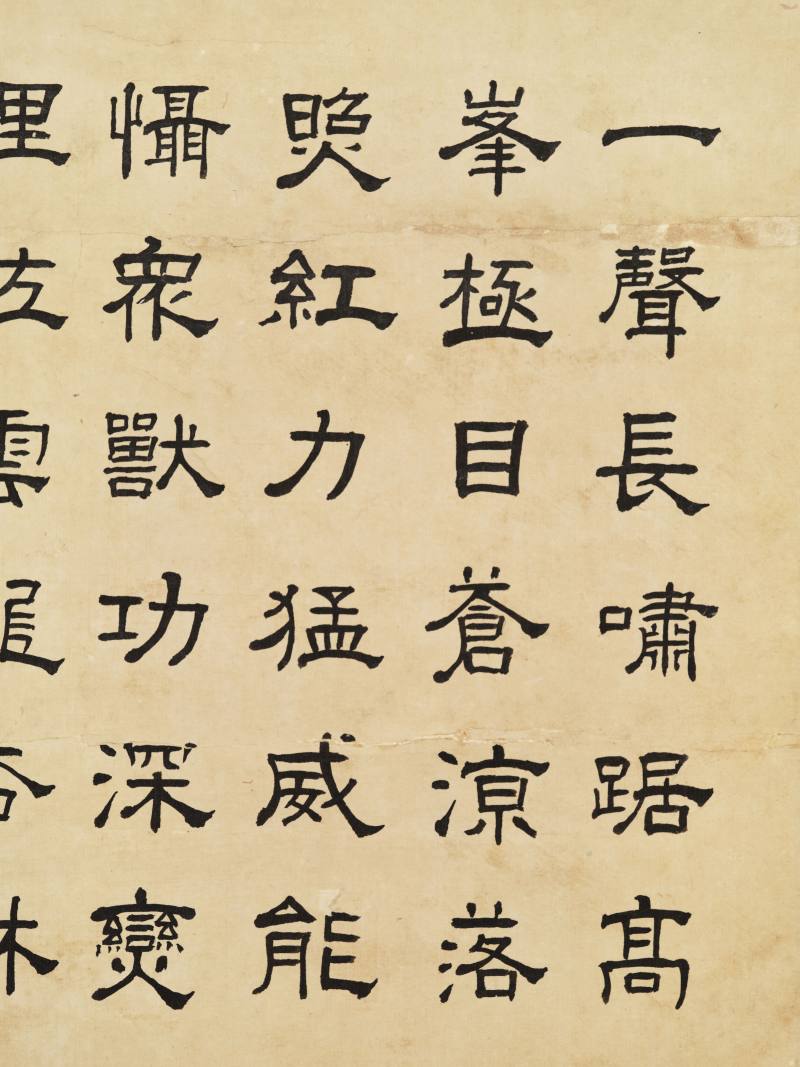 一聲長嘯踞高
峯極目蒼涼落
照紅力猛威能
懾衆獸功深變
雲